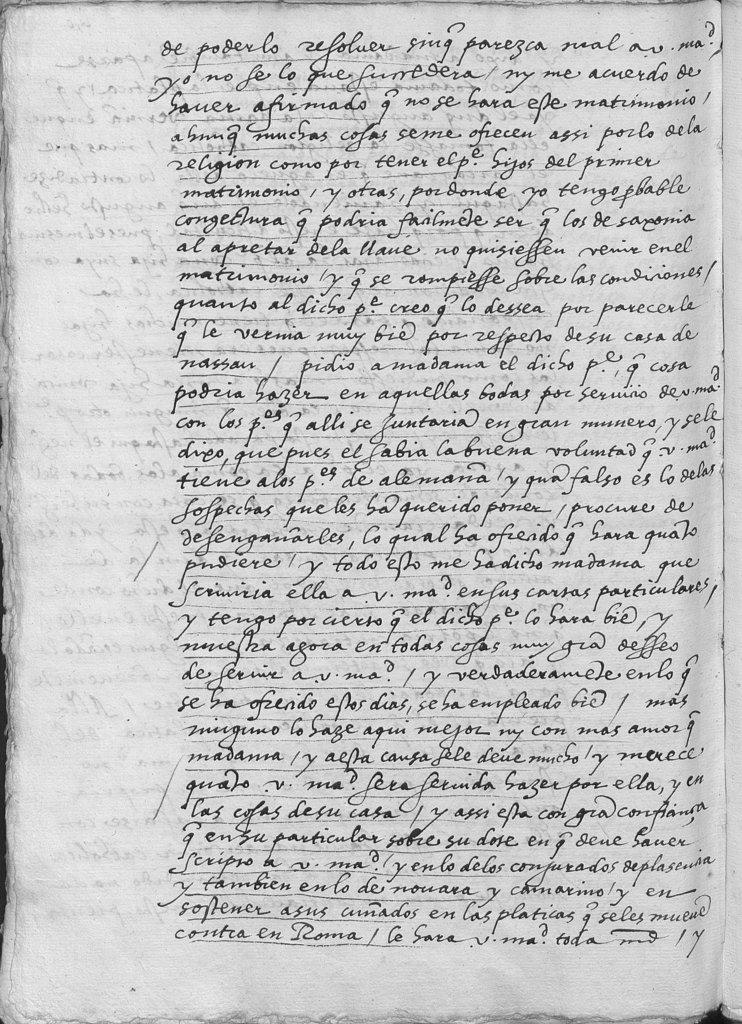 de poderlo resoluer sinq̃ parezca mal a v. mad,
yo no se lo que sucedera / ny me acuerdo de
hauer afirmado q̃ no se hara este matrimonio /
ahunq̃ muchas cosas seme ofrecen assi porlo dela
religion como por tener el pe. hijos del primer
matrimonio / y otras, pordonde yo tengo ꝓbable
congectura q̃ podria facilmẽte ser q̃ los de saxonia
al apretar dela llaue no quisiessen venir enel
matrimonio / y q̃ se rompiesse sobre las condiciones /
quanto al dicho pe. creo q̃ lo dessea por parecerle
q̃ le vernia muy biẽ por respecto de su casa de
nassau / pidio a madama el dicho pe., q̃ cosa
podria hazer en aquellas bodas por seruicio de v. mad.
con los pes. q̃ alli se juntariã en gran numero, y sele
dixo, que pues el sabia la buena voluntad q̃ v. mad.
tiene alos pes. de alemañã / y quã falso es lo delas
sospechas que les hã querido poner / procure de
desengañarles, lo qual ha ofrecido q̃ hara quãto
pudiere / y todo esto me ha dicho madama que
scriuiria ella a v. mad. en sus cartas particulares /
y tengo por cierto q̃ el dicho pe. lo hara biẽ, y
muestra agora en todas cosas muy grã desseo
de seruir a v. mad. / y verdaderamẽte enlo q̃
se ha ofrecido estos dias, se ha empleado biẽ / mas
ninguno lo haze aqui mejor ny con mas amor q̃
madama / y a esta causa sele deue mucho / y merece
quãto v. mad. sera seruida hazer por ella, y en
las cosas de su casa / y assi esta con grã confiãça
q̃ en su particular sobre su dote en q̃ deue hauer
scripto a v. mad. / y enlo delos conjurados de plasencia
y tambien enlo de nouara y camarino / y en
sostener a sus cuñados en las platicas q̃ seles mueuẽ
contra en Roma / le hara v. mad. toda md / y